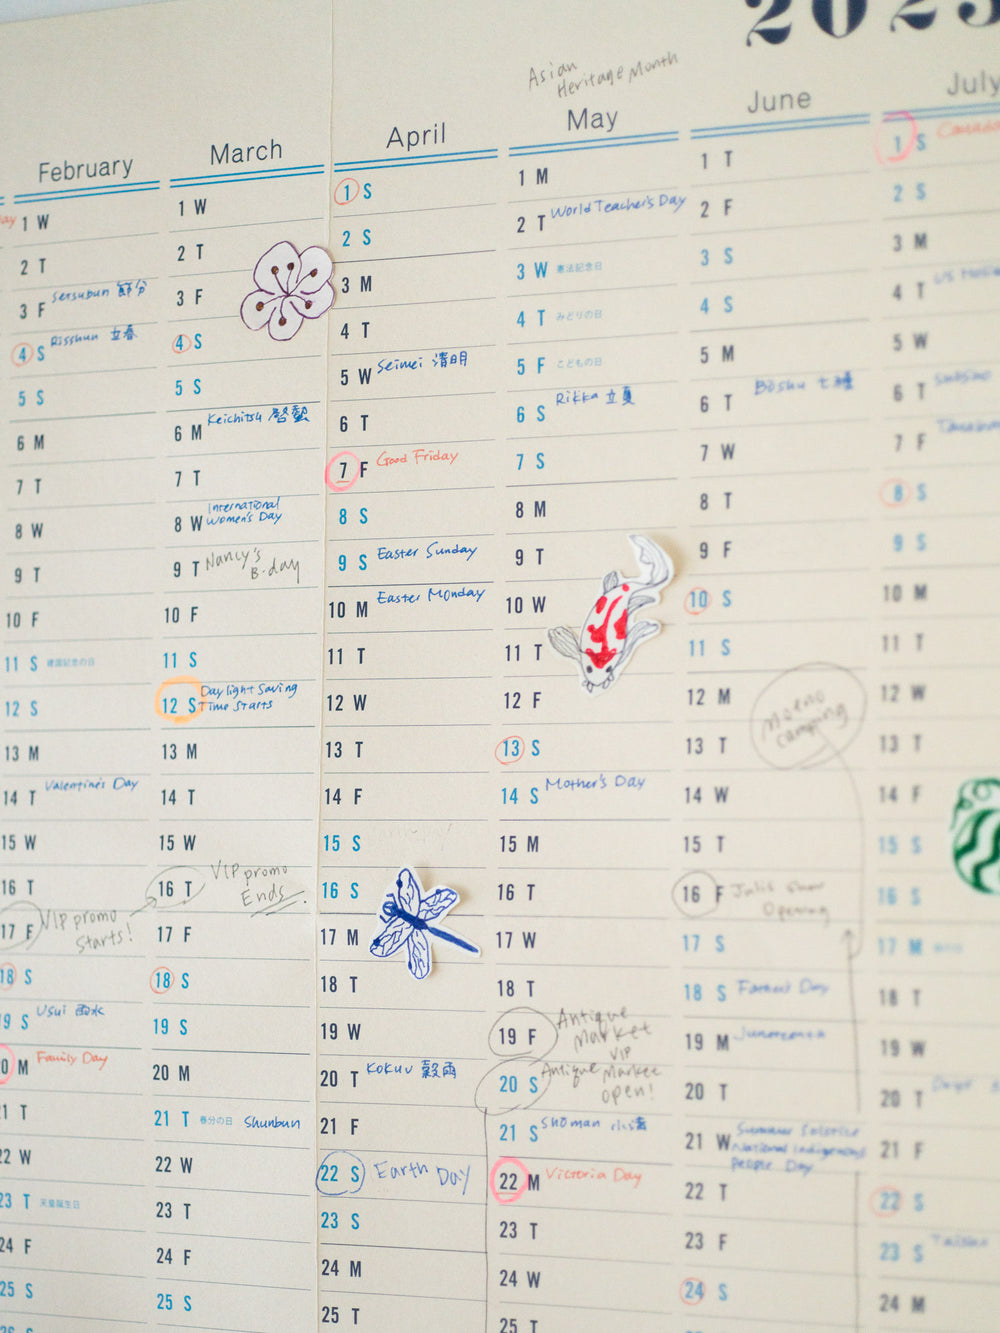 Asian
Heritage Month
February
1 W
2 T
3 F Setsubun 節分
4 S Risshun 立春
5 S
6 M
7 T
8 W
9 T
10 F
11 S 建国記念の日
12 S
13 M
14 T Valentine's Day
15 W
16 T
17 F VIP promo
Starts!
18 S
19 S Usui 雨水
20 M Family Day
21 T
22 W
23 T 天皇誕生日
24 F
25 S
March
1 W
2 T
3 F
4 S
5 S
6 M Keichitsu 啓蟄
7 T
8 W International
Women's Day
9 T Nancy's
B-day
10 F
11 S
12 S Daylight Saving
Time Starts
13 M
14 T
15 W
16 T VIP promo
Ends.
17 F
18 S
19 S
20 M
21 T 春分の日 Shunbun
22 W
23 T
24 F
25 S
April
1 S
2 S
3 M
4 T
5 W Seimei 清明
6 T
7 F Good Friday
8 S
9 S Easter Sunday
10 M Easter Monday
11 T
12 W
13 T
14 F
15 S
16 S
17 M
18 T
19 W
20 T Kokuu 穀雨
21 F
22 S Earth Day
23 S
24 M
25 T
May
1 M
2 T World Teacher's Day
3 W 憲法記念日
4 T みどりの日
5 F こどもの日
6 S Rikka 立夏
7 S
8 M
9 T
10 W
11 T
12 F
13 S
14 S Mother's Day
15 M
16 T
17 W
18 T
19 F Antique
Market
VIP
20 S Antique Market
open!
21 S Shōman 小満
22 M Victoria Day
23 T
24 W
25 T
June
1 T
2 F
3 S
4 S
5 M
6 T Bōshu
7 W
8 T
9 F
10 S
11 S
12 M
13 T
14 W
15 T
16 F
Opening
17 S
18 S Father's Day
19 M Juneteenth
20 T
21 W Summer Solstice
National Indigenous
People Day
22 T
23 F
24 S
camping
July
1 S Canada
2 S
3 M
4 T US
5 W
6 T
7 F
8 S
9 S
10 M
11 T
12 W
13 T
14 F
15 S
16 S
17 M
18 T
19 W
20 T
21 F
22 S
23 S
24 M